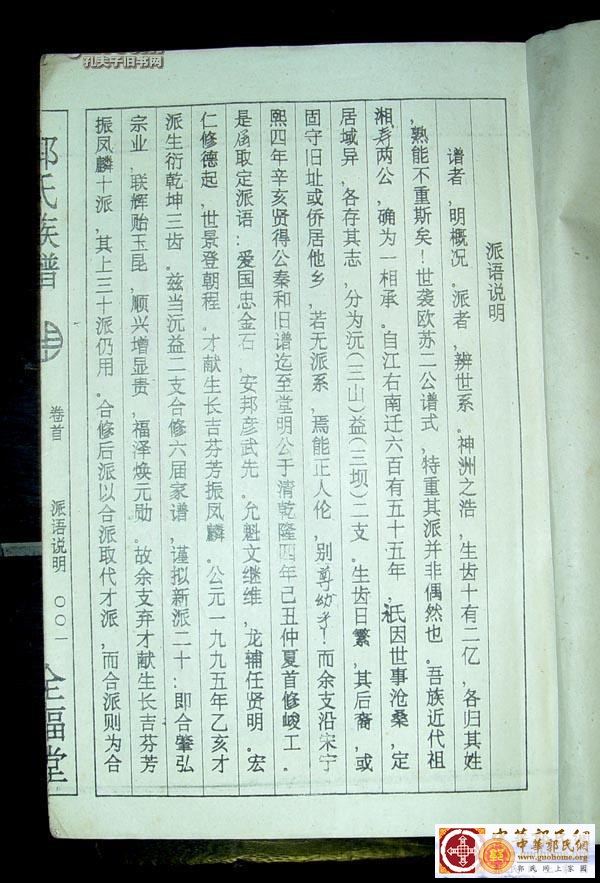 派语说明
谱者，明概况。派者，辨世系。神洲之浩，生齿十有二亿，各归其姓
，熟能不重斯矣！世袭欧苏二公谱式，特重其派并非偶然也。吾族近代祖
湘、寿两公，确为一相承。自江右南迁六百有五十五年，祇因世事沧桑，定
居域异，各存其志，分为沅（三山）益（三坝）二支。生齿日繁，其后裔，或
固守旧址或侨居他乡，若无派系，焉能正人伦，别尊幼乎！而余支沿宋宁
熙四年辛亥贤得公秦和旧谱迄至堂明公于清乾隆四年己丑仲夏首修峻工。
是届取定派语：爱国忠金石，安邦彦武先。允魁文继维，龙辅任贤明。宏
仁修德起，世景登朝程。才献生长吉芬芳振凤麟。公元一九九五年乙亥才
派生衍乾坤三齿。兹当沅益二支合修六届家谱，谨拟新派二十：即合肇弘
宗业，联辉贻玉昆，顺兴增显贵，福泽焕元勋。故余支弃才献生长吉芬芳
振凤麟十派，其上三十派仍用。合修后派以合派取代才派，而合派则为合
郭氏族谱
卷首
派语说明
〇〇一
全福堂
孔夫子旧书网
中华郭氏网
中華郭氏網
www.guohome.org
郭氏网上家园